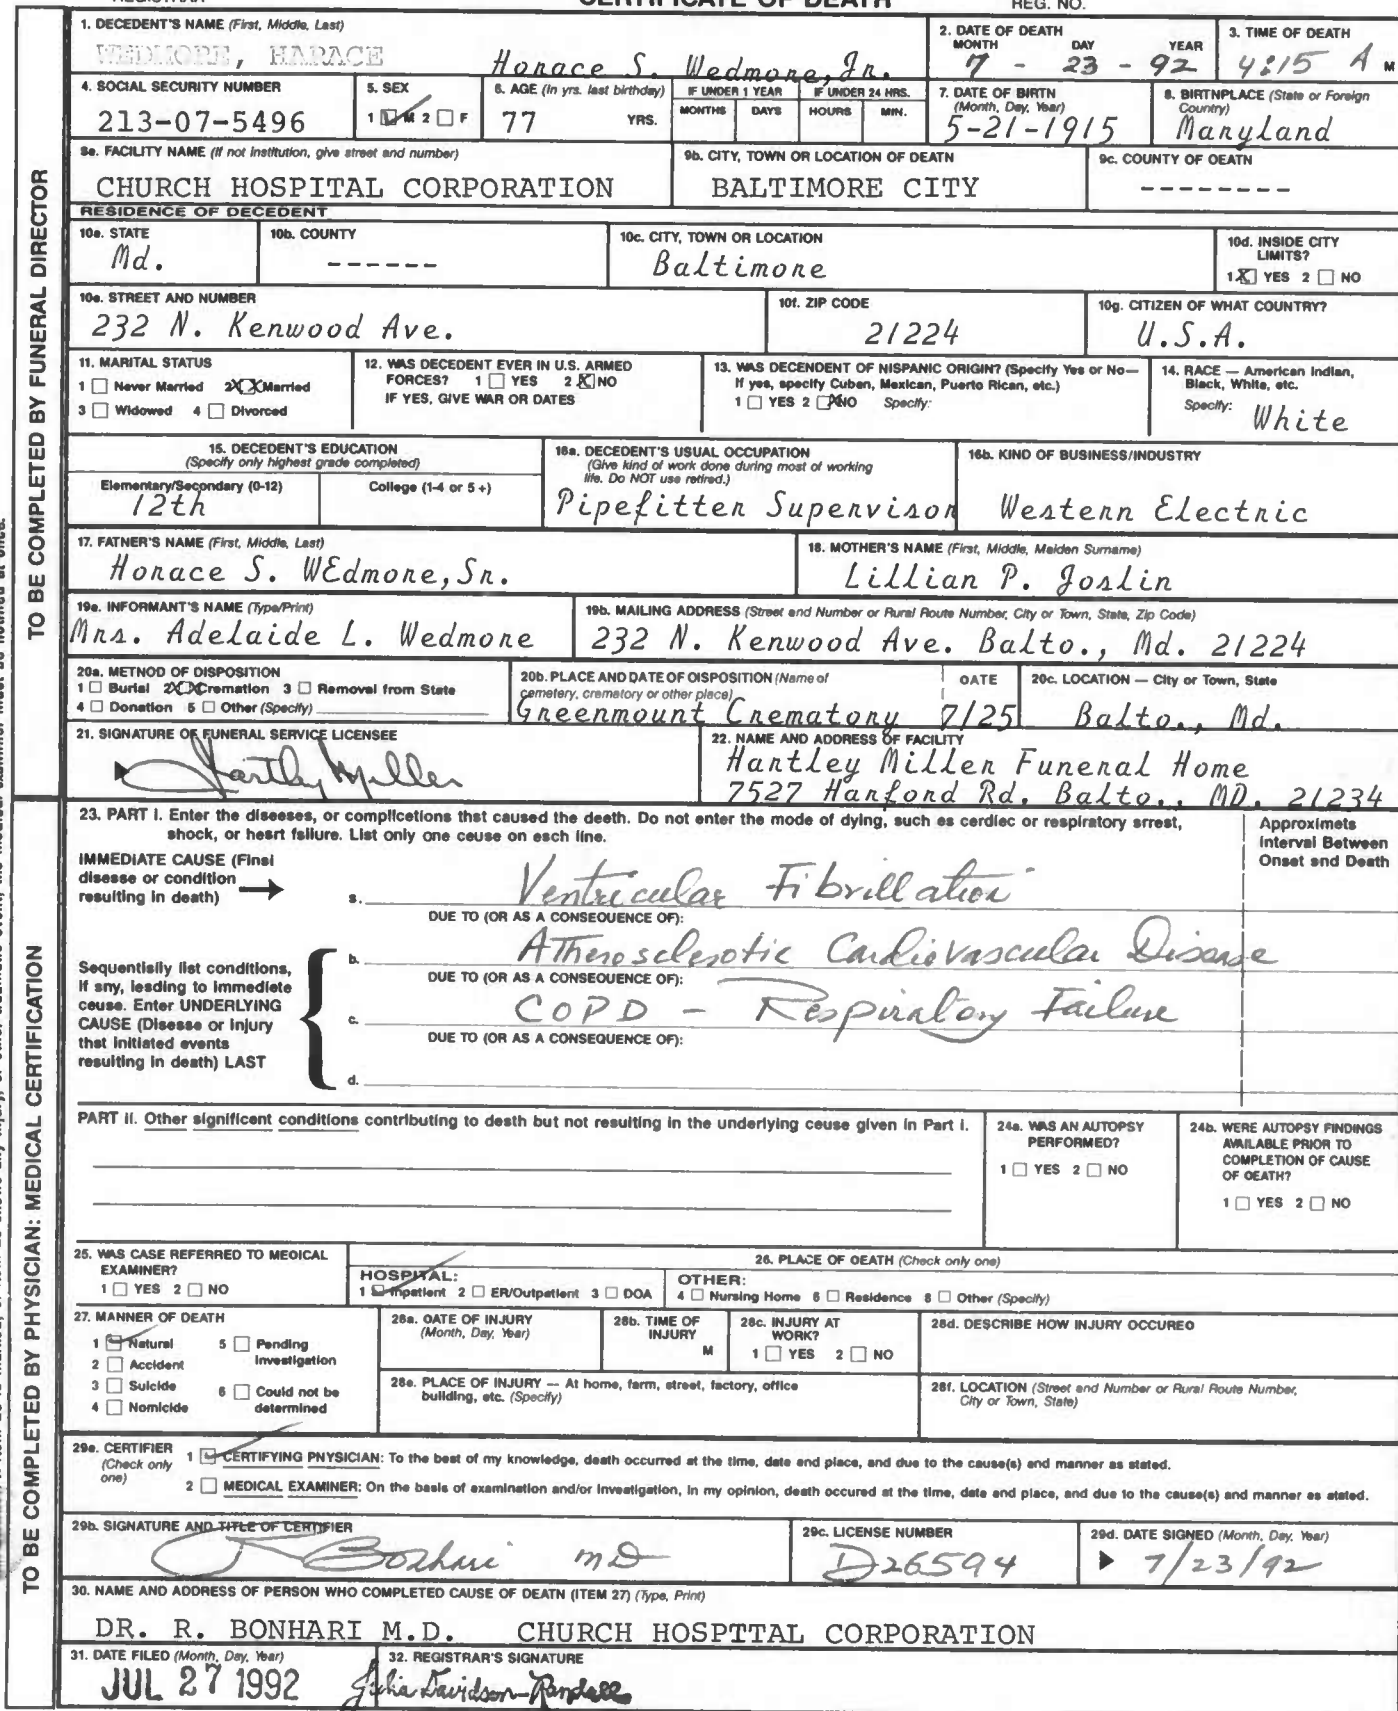 CERTIFICATE OF DEATH
REG. NO.
1. DECEDENT'S NAME (First, Middle, Last)
WEDMORE, HARACE
Horace S. Wedmore, Jr.
2. DATE OF DEATH
MONTH DAY YEAR
7 - 23 - 92
3. TIME OF DEATH
4:15 A M
4. SOCIAL SECURITY NUMBER
213-07-5496
5. SEX
1 M 2 F
6. AGE (In yrs. last birthday)
77 YRS.
IF UNDER 1 YEAR
MONTHS DAYS
IF UNDER 24 HRS.
HOURS MIN.
7. DATE OF BIRTH
(Month, Day, Year)
5-21-1915
8. BIRTHPLACE (State or Foreign
Country)
Maryland
9a. FACILITY NAME (If not institution, give street and number)
CHURCH HOSPITAL CORPORATION
9b. CITY, TOWN OR LOCATION OF DEATH
BALTIMORE CITY
9c. COUNTY OF DEATH
--------
RESIDENCE OF DECEDENT
10a. STATE
Md.
10b. COUNTY
------
10c. CITY, TOWN OR LOCATION
Baltimore
10d. INSIDE CITY
LIMITS?
1 X YES 2 NO
10e. STREET AND NUMBER
232 N. Kenwood Ave.
10f. ZIP CODE
21224
10g. CITIZEN OF WHAT COUNTRY?
U.S.A.
11. MARITAL STATUS
1 Never Married 2 XX Married
3 Widowed 4 Divorced
12. WAS DECEDENT EVER IN U.S. ARMED
FORCES? 1 YES 2 X NO
IF YES, GIVE WAR OR DATES
13. WAS DECENDENT OF HISPANIC ORIGIN? (Specify Yes or No—
If yes, specify Cuban, Mexican, Puerto Rican, etc.)
1 YES 2 X NO Specify:
14. RACE — American Indian,
Black, White, etc.
Specify: White
15. DECEDENT'S EDUCATION
(Specify only highest grade completed)
Elementary/Secondary (0-12)
12th
College (1-4 or 5+)
16a. DECEDENT'S USUAL OCCUPATION
(Give kind of work done during most of working
life. Do NOT use retired.)
Pipefitter Supervisor
16b. KIND OF BUSINESS/INDUSTRY
Western Electric
17. FATHER'S NAME (First, Middle, Last)
Horace S. WEdmore, Sr.
18. MOTHER'S NAME (First, Middle, Maiden Surname)
Lillian P. Joslin
19a. INFORMANT'S NAME (Type/Print)
Mrs. Adelaide L. Wedmore
19b. MAILING ADDRESS (Street and Number or Rural Route Number, City or Town, State, Zip Code)
232 N. Kenwood Ave. Balto., Md. 21224
20a. METHOD OF DISPOSITION
1 Burial 2 XX Cremation 3 Removal from State
4 Donation 5 Other (Specify)
20b. PLACE AND DATE OF DISPOSITION (Name of
cemetery, crematory or other place)
Greenmount Crematory
DATE
7/25
20c. LOCATION — City or Town, State
Balto., Md.
21. SIGNATURE OF FUNERAL SERVICE LICENSEE
Hartley Miller
22. NAME AND ADDRESS OF FACILITY
Hartley Miller Funeral Home
7527 Harford Rd. Balto., MD. 21234
TO BE COMPLETED BY FUNERAL DIRECTOR
23. PART I. Enter the diseases, or complications that caused the death. Do not enter the mode of dying, such as cardiac or respiratory arrest,
shock, or heart failure. List only one cause on each line.
Approximate
Interval Between
Onset and Death
IMMEDIATE CAUSE (Final
disease or condition
resulting in death)
a. Ventricular Fibrillation
DUE TO (OR AS A CONSEQUENCE OF):
Sequentially list conditions,
if any, leading to immediate
cause. Enter UNDERLYING
CAUSE (Disease or injury
that initiated events
resulting in death) LAST
b. Atherosclerotic Cardiovascular Disease
DUE TO (OR AS A CONSEQUENCE OF):
c. COPD - Respiratory Failure
DUE TO (OR AS A CONSEQUENCE OF):
d.
PART II. Other significant conditions contributing to death but not resulting in the underlying cause given in Part I.
24a. WAS AN AUTOPSY
PERFORMED?
1 YES 2 NO
24b. WERE AUTOPSY FINDINGS
AVAILABLE PRIOR TO
COMPLETION OF CAUSE
OF DEATH?
1 YES 2 NO
25. WAS CASE REFERRED TO MEDICAL
EXAMINER?
1 YES 2 NO
26. PLACE OF DEATH (Check only one)
HOSPITAL:
1 Inpatient 2 ER/Outpatient 3 DOA
OTHER:
4 Nursing Home 5 Residence 6 Other (Specify)
27. MANNER OF DEATH
1 Natural 5 Pending
Investigation
2 Accident
3 Suicide 6 Could not be
determined
4 Homicide
28a. DATE OF INJURY
(Month, Day, Year)
28b. TIME OF
INJURY
M
28c. INJURY AT
WORK?
1 YES 2 NO
28d. DESCRIBE HOW INJURY OCCURED
28e. PLACE OF INJURY — At home, farm, street, factory, office
building, etc. (Specify)
28f. LOCATION (Street and Number or Rural Route Number,
City or Town, State)
29a. CERTIFIER
(Check only
one)
1 CERTIFYING PHYSICIAN: To the best of my knowledge, death occurred at the time, date and place, and due to the cause(s) and manner as stated.
2 MEDICAL EXAMINER: On the basis of examination and/or investigation, in my opinion, death occured at the time, date and place, and due to the cause(s) and manner as stated.
29b. SIGNATURE AND TITLE OF CERTIFIER
Bonhari MD
29c. LICENSE NUMBER
D26594
29d. DATE SIGNED (Month, Day, Year)
7/23/92
30. NAME AND ADDRESS OF PERSON WHO COMPLETED CAUSE OF DEATH (ITEM 27) (Type, Print)
DR. R. BONHARI M.D. CHURCH HOSPTTAL CORPORATION
31. DATE FILED (Month, Day, Year)
JUL 27 1992
32. REGISTRAR'S SIGNATURE
Julia Davidson-Randall
TO BE COMPLETED BY PHYSICIAN: MEDICAL CERTIFICATION